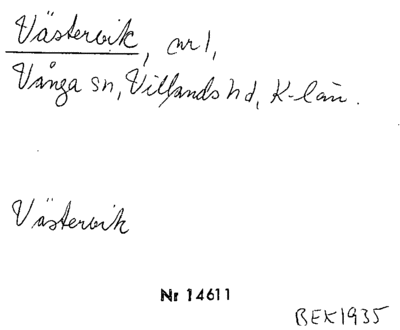 Västervik, nr 1,
Vånga sn, Villands hd, K-län.
Västervik
Nr 14611
BEX 1935